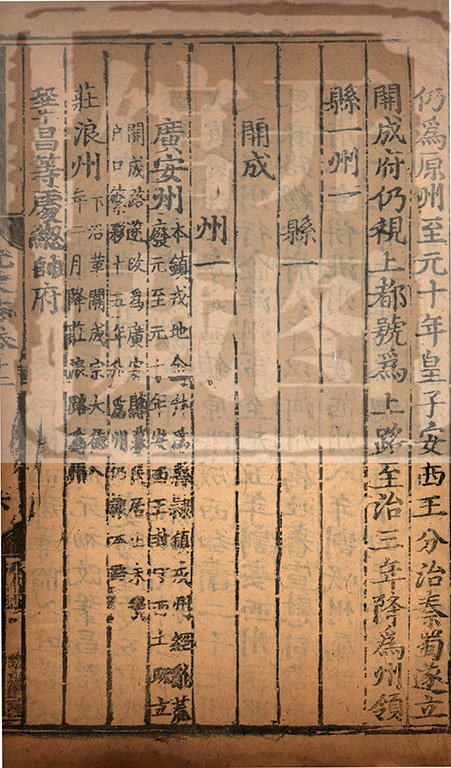 仍為原州至元十年皇子安西王分治秦蜀遂立
開成府仍視上都號為上路至治三年降為州領
縣一州一
縣一
開成
州一
廣安州本鎮戎地金升為縣隸鎮戎州經亂荒
廢元至元十年安西王封守西土既立
開成路遂改為廣安縣募民居止未幾
戶口繁夥十五年升為州仍隸本路
莊浪州下沿革闕成宗大德八
年二月降莊浪路為州
鞏昌等處總帥府